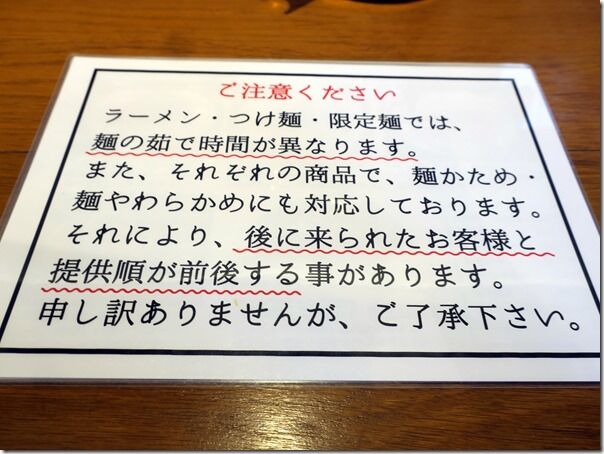 ご注意ください
ラーメン・つけ麺・限定麺では、
麺の茹で時間が異なります。
また、それぞれの商品で、麺かため・
麺やわらかめにも対応しております。
それにより、後に来られたお客様と
提供順が前後する事があります。
申し訳ありませんが、ご了承下さい。